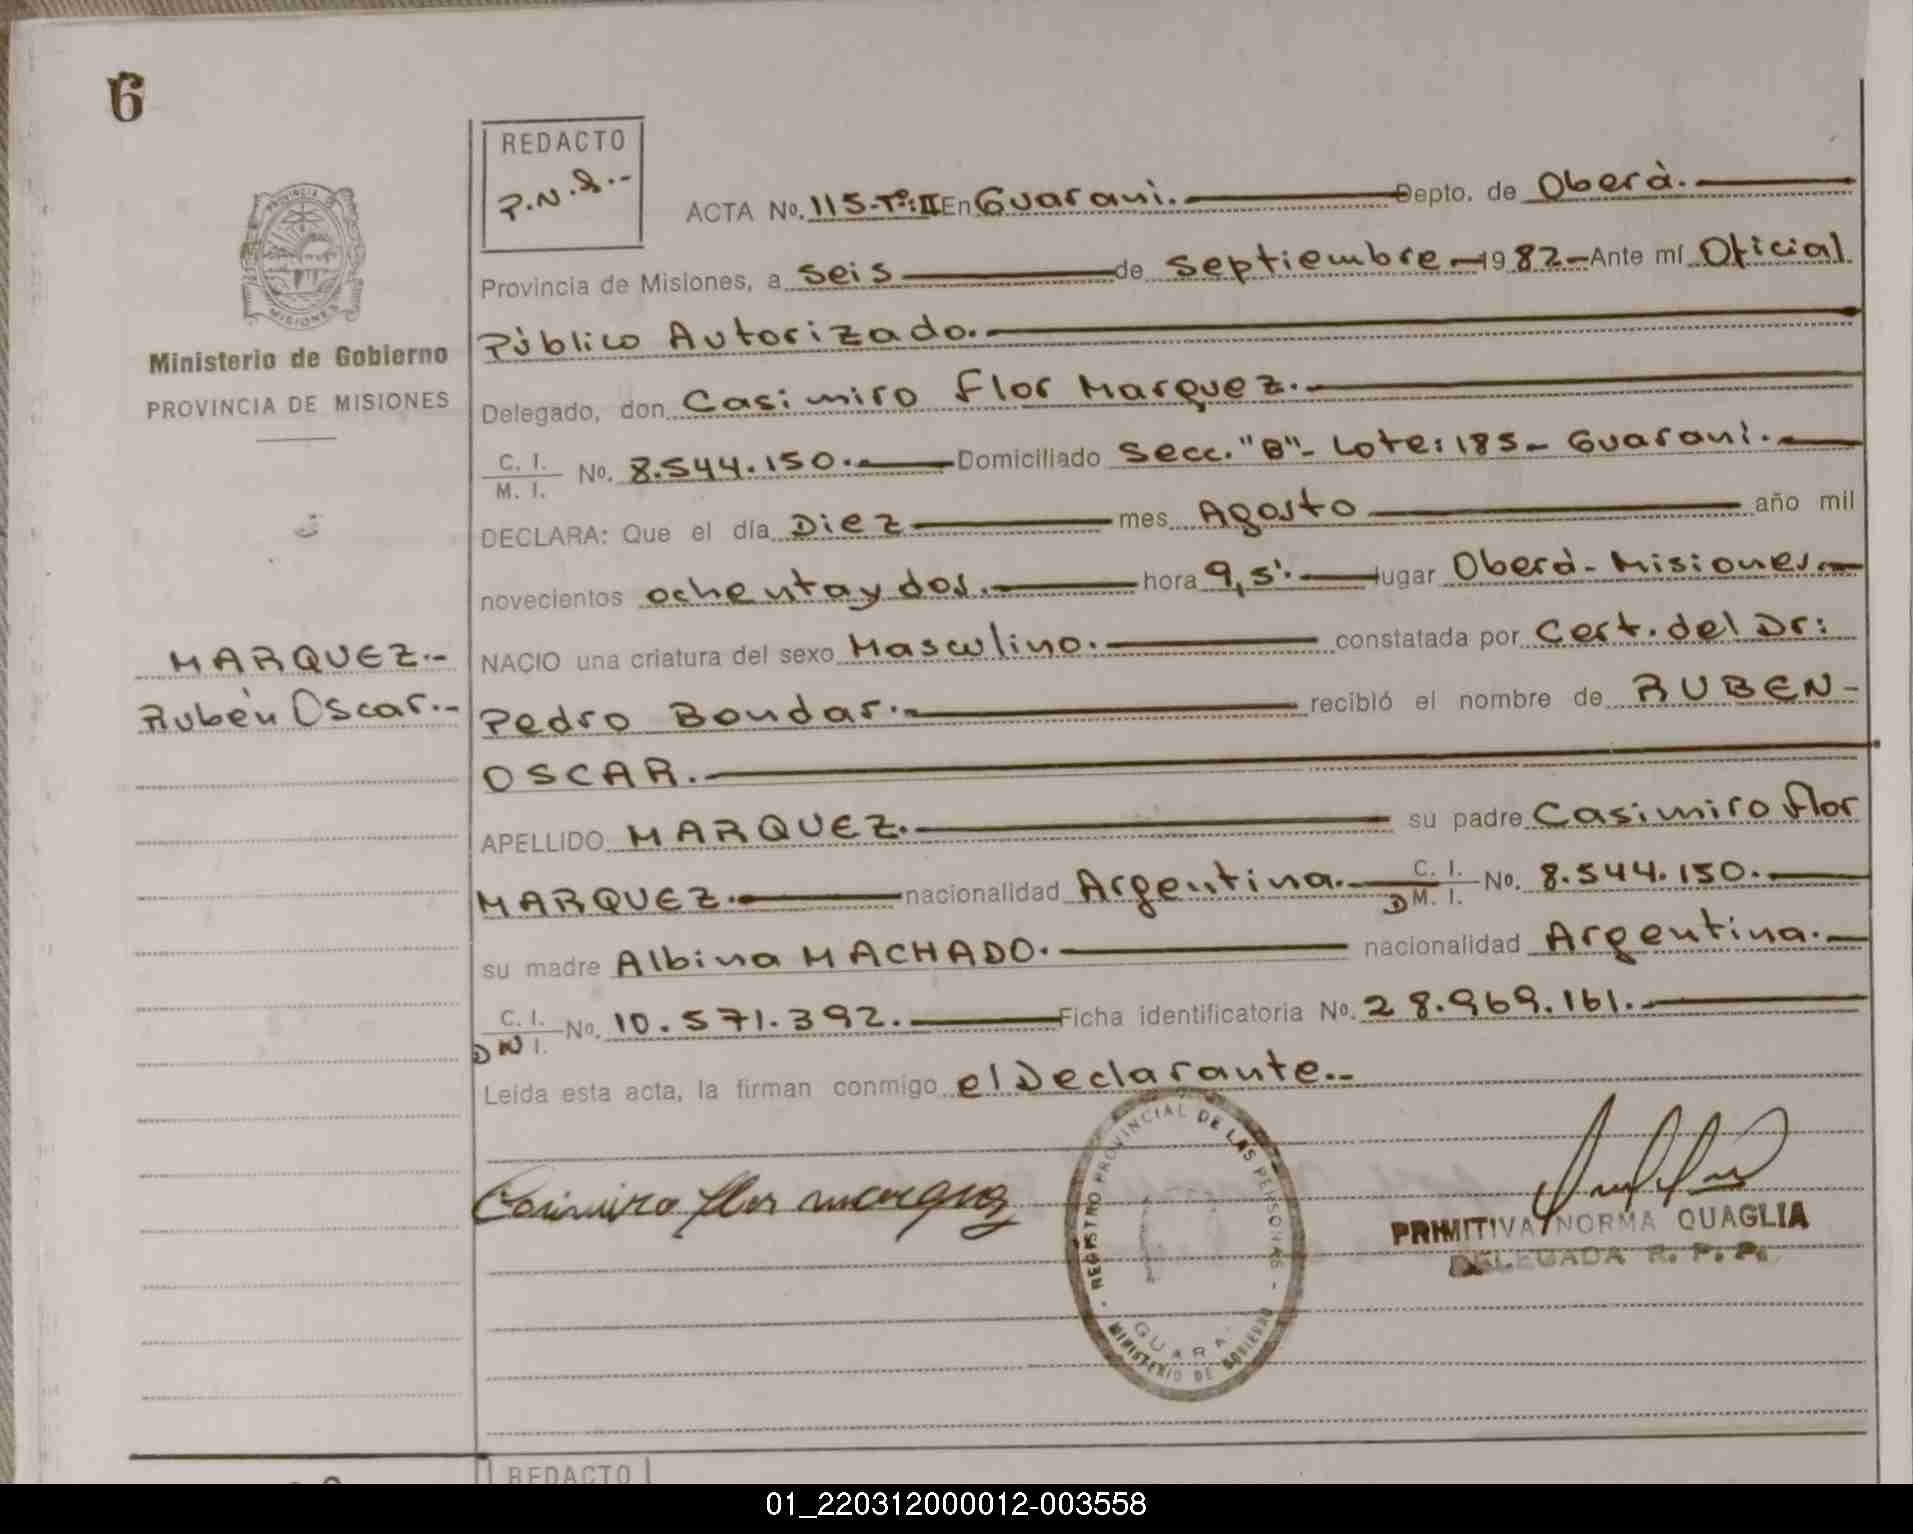 6
REDACTO
P.N.Q.-
ACTA No. 115-Tº:II En Guarani. Depto. de Oberà.
Provincia de Misiones, a seis de septiembre 1982- Ante mí Oficial
Pùblico Autorizado.
Delegado, don Casimiro Flor Marquez.
C. I. M. I. No. 8.544.150. Domiciliado Secc. "B"- Lote: 185- Guarani.
DECLARA: Que el día Diez mes Agosto año mil
novecientos ochenta y dos. hora 9,5'. lugar Oberà- Misiones
NACIO una criatura del sexo Masculino. constatada por Cert. del Dr:
Pedro Bondar. recibló el nombre de RUBEN-
OSCAR.
APELLIDO MARQUEZ. su padre Casimiro Flor
MARQUEZ. nacionalidad Argentina. C. I. D M. I. No. 8.544.150.
su madre Albina MACHADO. nacionalidad Argentina.
C. I. D N I. No. 10.571.392. Ficha identificatoria No. 28.969.161.
Leída esta acta, la firman conmigo el Declarante.-
Casimiro flor marquez
PRIMITIVA NORMA QUAGLIA
DELEGADA R. P. P.
REGISTRO PROVINCIAL DE LAS PERSONAS -
GUARA
MINISTERIO DE GOBIERNO
PROVINCIA
MISIONES
Ministerio de Gobierno
PROVINCIA DE MISIONES
MARQUEZ.-
Rubèn Oscar.-
REDACTO
01_220312000012-003558